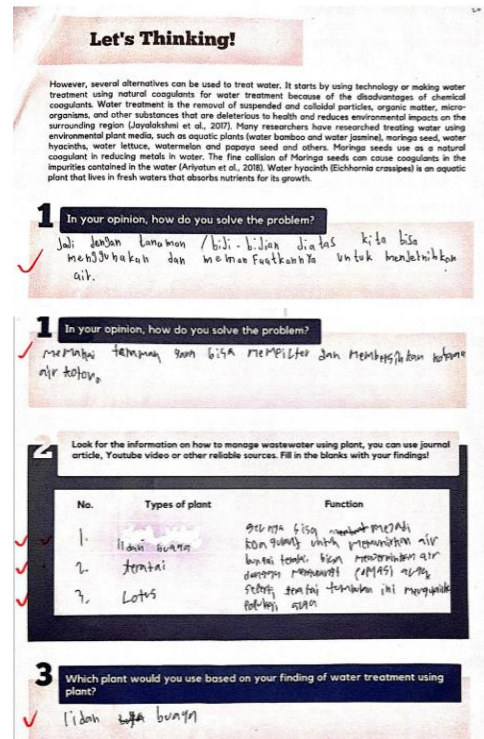 Let's Thinking!
However, several alternatives can be used to treat water. It starts by using technology or making water
treatment using natural coagulants for water treatment because of the disadvantages of chemical
coagulants. Water treatment is the removal of suspended and colloidal particles, organic matter, micro-
organisms, and other substances that are deleterious to health and reduces environmental impacts on the
surrounding region (Jayalakshmi et al., 2017). Many researchers have researched treating water using
environmental plant media, such as aquatic plants (water bamboo and water jasmine), moringa seed, water
hyacinths, water lettuce, watermelon and papaya seed and others. Moringa seeds use as a natural
coagulant in reducing metals in water. The fine collision of Moringa seeds can cause coagulants in the
impurities contained in the water (Ariyatun et al., 2018). Water hyacinth (Eichhornia crassipes) is an aquatic
plant that lives in fresh waters that absorbs nutrients for its growth.
1 In your opinion, how do you solve the problem?
Jadi dengan tanaman / biji-bijian diatas kita bisa
menggunakan dan memanfaatkannya untuk menjernihkan
air.
1 In your opinion, how do you solve the problem?
memakai tanaman yang bisa memfilter dan membersihkan
air kotor.
2 Look for the information on how to manage wastewater using plant, you can use journal
article, Youtube video or other reliable sources. Fill in the blanks with your findings!
No. Types of plant Function
1. lidah buaya gelnya bisa menjadi
untuk air
2. teratai bisa air
3. Lotus teratai ini
3 Which plant would you use based on your finding of water treatment using
plant?
lidah buaya